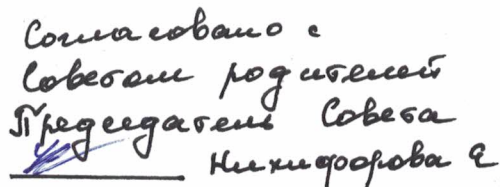 Согласовано с
Советом родителей
Председатель Совета
Никифорова Е